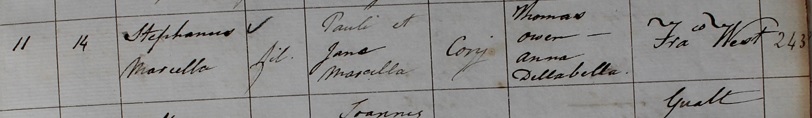 11 14 Stephanus Marcella fil. Pauli et Jane Marcella Conj Thomas Owen — Anna Dellabella. Fra^cs West 243
Joannis Gualt